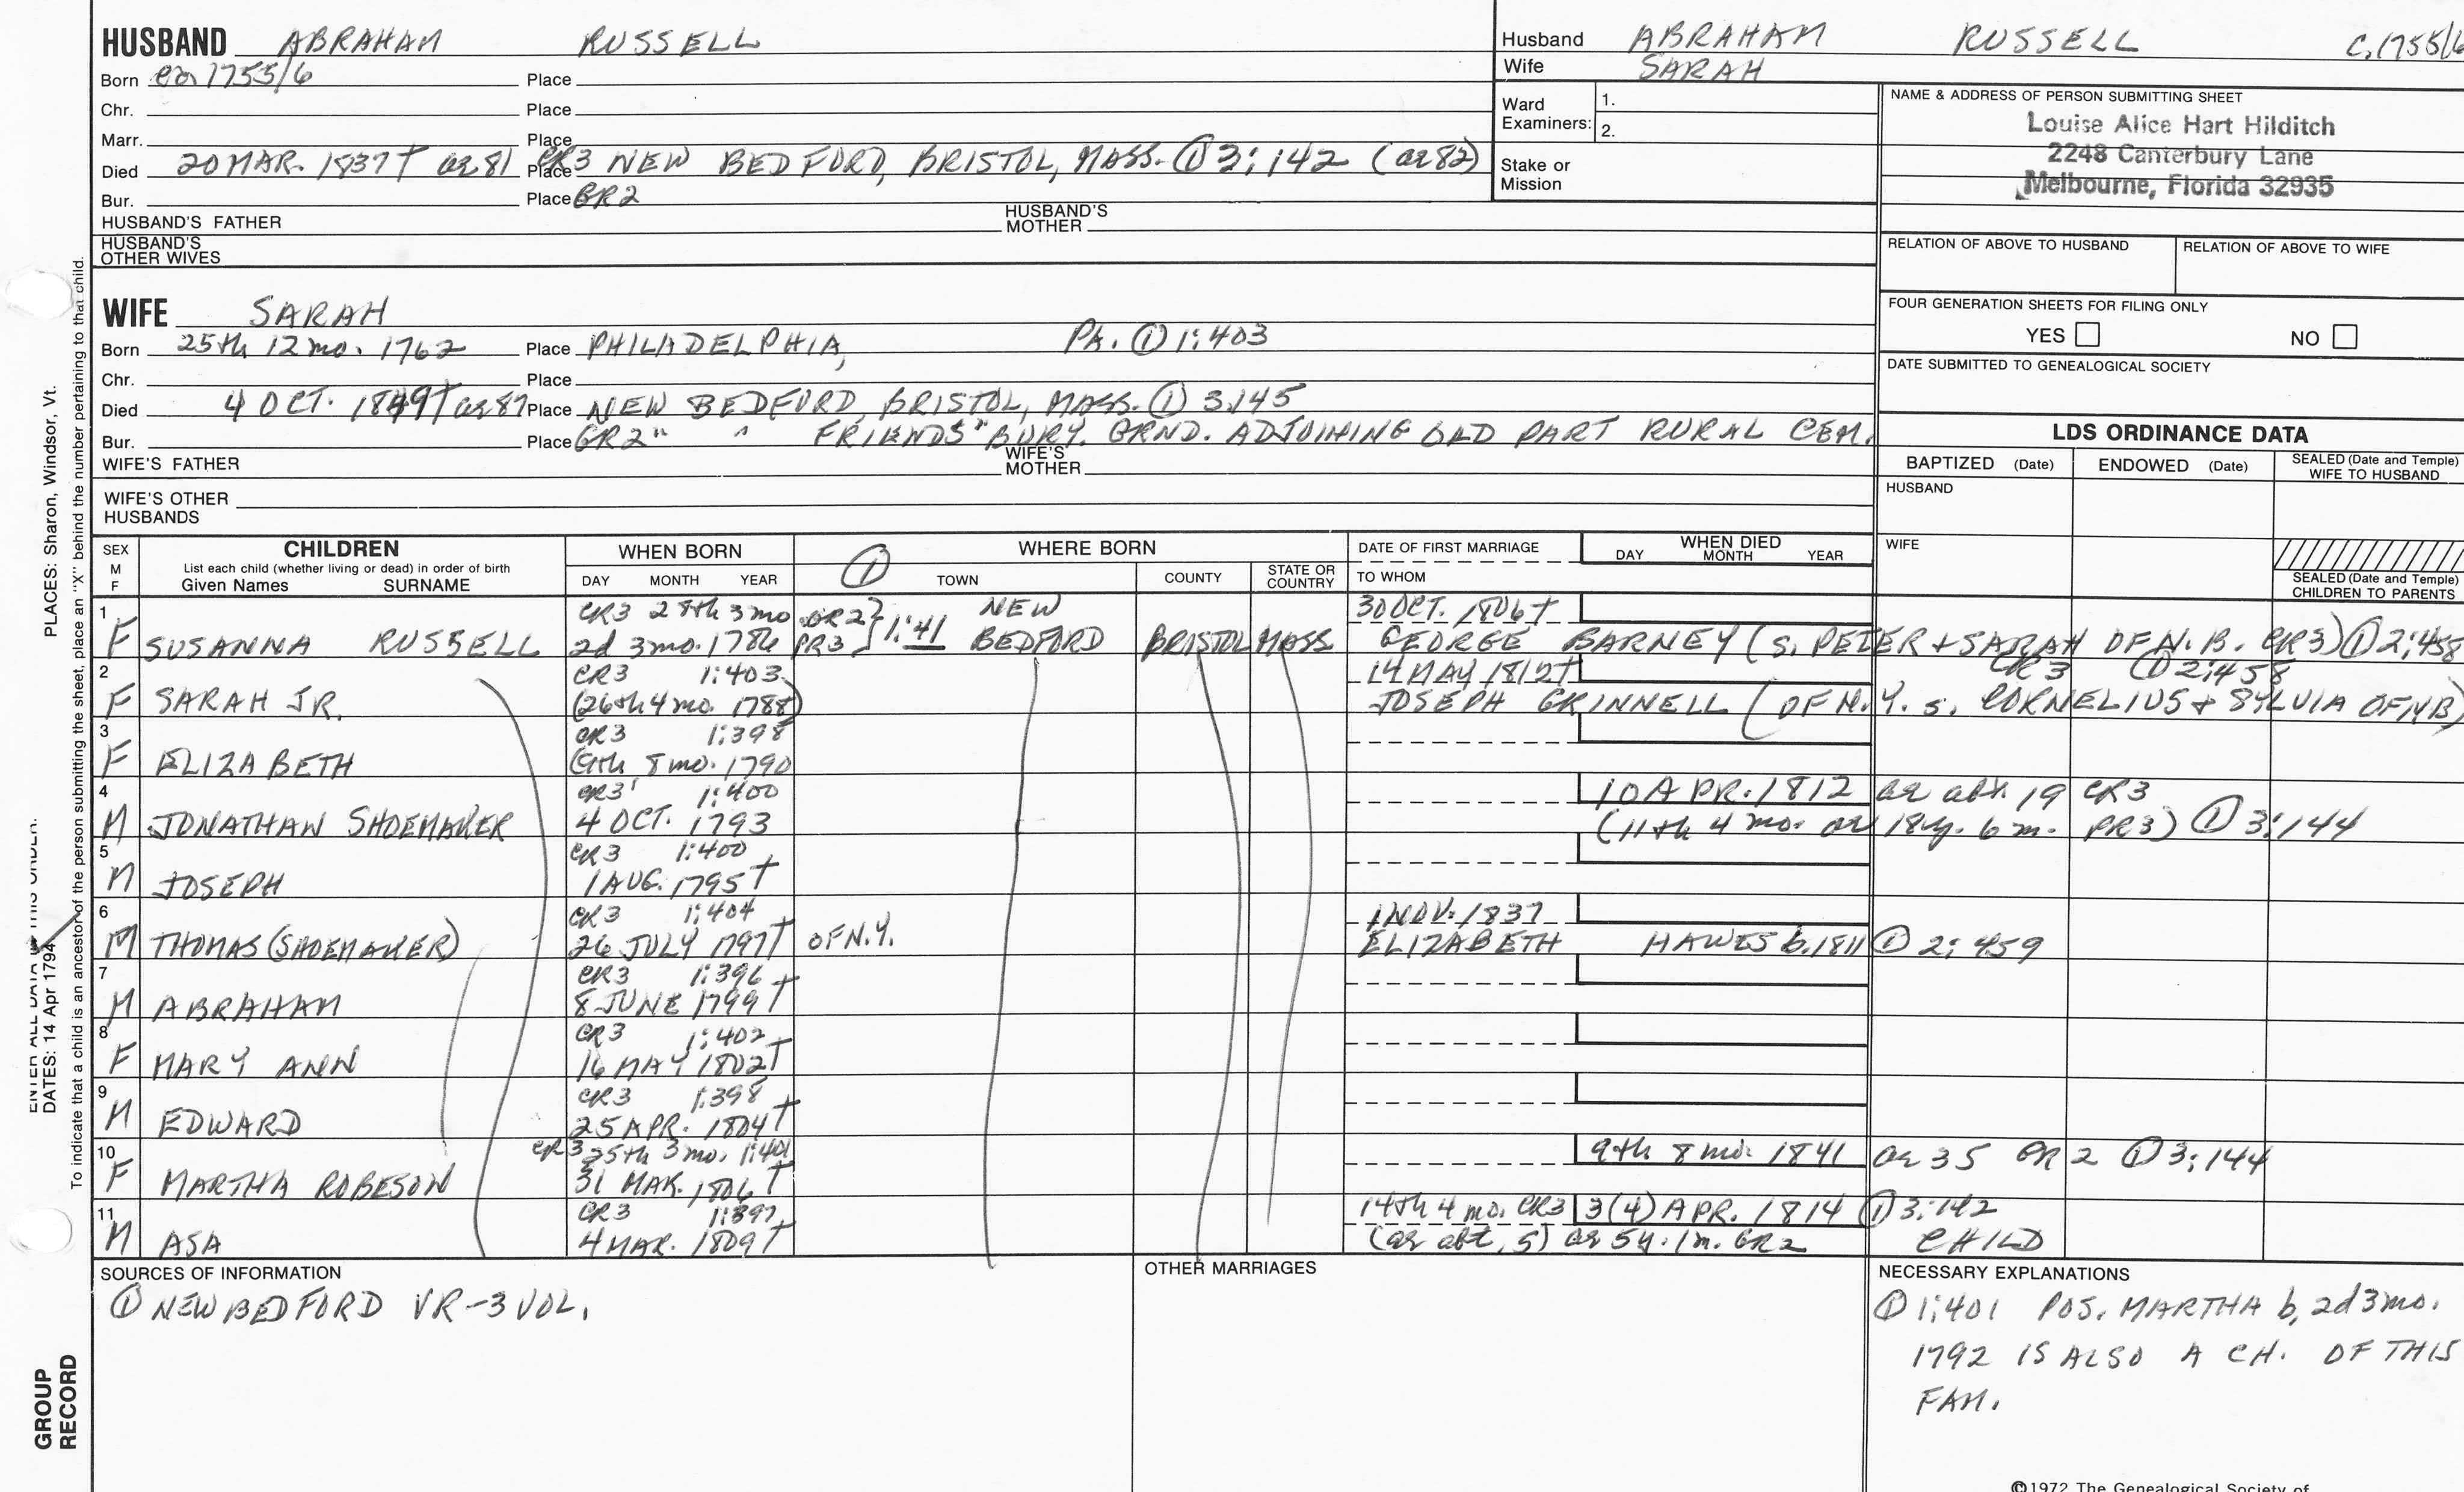 HUSBAND ABRAHAM RUSSELL
Born ca. 1755/6 Place
Chr. Place
Marr. Place
Died 20 MAR. 1837† ae 81 Place CR3 NEW BEDFORD, BRISTOL, MASS. ① 3:142 (ae 82)
Bur. Place GR2
HUSBAND'S FATHER HUSBAND'S MOTHER
HUSBAND'S OTHER WIVES
Husband ABRAHAM RUSSELL C.1755/6
Wife SARAH
Ward Examiners: 1.
2.
Stake or Mission
NAME & ADDRESS OF PERSON SUBMITTING SHEET
Louise Alice Hart Hilditch
2248 Canterbury Lane
Melbourne, Florida 32935
RELATION OF ABOVE TO HUSBAND RELATION OF ABOVE TO WIFE
FOUR GENERATION SHEETS FOR FILING ONLY
YES NO
DATE SUBMITTED TO GENEALOGICAL SOCIETY
WIFE SARAH
Born 25th 12mo. 1762 Place PHILADELPHIA, PA. ① 1:403
Chr. Place
Died 4 OCT. 1849† ae 87 Place NEW BEDFORD, BRISTOL, MASS. ① 3:145
Bur. Place GR2 " " FRIENDS" BURY. GRND. ADJOINING OLD PART RURAL CEM.
WIFE'S FATHER WIFE'S MOTHER
WIFE'S OTHER HUSBANDS
LDS ORDINANCE DATA
BAPTIZED (Date) ENDOWED (Date) SEALED (Date and Temple) WIFE TO HUSBAND
HUSBAND
WIFE
SEALED (Date and Temple) CHILDREN TO PARENTS
SEX M F
CHILDREN
List each child (whether living or dead) in order of birth
Given Names SURNAME
WHEN BORN
DAY MONTH YEAR
① WHERE BORN
TOWN COUNTY STATE OR COUNTRY
DATE OF FIRST MARRIAGE
TO WHOM
WHEN DIED
DAY MONTH YEAR
1 CR3 28th 3mo GR2} NEW 30 OCT. 1806†
F SUSANNA RUSSELL 2d 3mo. 1786 PR3} 1:41 BEDFORD BRISTOL MASS GEORGE BARNEY (s. PETER + SARAH OF N.B. CR3) ① 2:458
2 CR3 1:403 14 MAY 1812† CR3 ① 2:458
F SARAH JR. (26th 4mo. 1788) JOSEPH GRINNELL (OF N.Y. s. CORNELIUS + SYLVIA OF NB)
3 CR3 1:398
F ELIZABETH (9th 8mo. 1790
4 CR3 1:400 10 APR. 1812 ae abt. 19 CR3
M JONATHAN SHOEMAKER 4 OCT. 1793 (11th 4 mo. ae 18y. 6m. PR3) ① 3:144
5 CR3 1:400
M JOSEPH 1 AUG. 1795†
6 CR3 1:404 1 NOV. 1837
M THOMAS (SHOEMAKER) 26 JULY 1797† OF N.Y. ELIZABETH HAWES b. 1811 ① 2:459
7 CR3 1:396
M ABRAHAM 8 JUNE 1799†
8 CR3 1:402
F MARY ANN 16 MAY 1802†
9 CR3 1:398
M EDWARD 25 APR. 1804†
10 CR3 25th 3mo. 1:401 9th 8 mo. 1841 ae 35 GR2 ① 3:144
F MARTHA ROBESON 31 MAR. 1806†
11 CR3 1:397 14th 4 mo. CR3 3(4) APR. 1814 ① 3:142
M ASA 4 MAR. 1809† (ae abt. 5) ae 5y. 1m. GR2 CHILD
SOURCES OF INFORMATION
① NEW BEDFORD VR-3 VOL.
OTHER MARRIAGES
NECESSARY EXPLANATIONS
① 1:401 POS. MARTHA b. 2d 3mo.
1792 IS ALSO A CH. OF THIS
FAM.
©1972 The Genealogical Society of
PLACES: Sharon, Windsor, Vt.
DATES: 14 Apr 1794
To indicate that a child is an ancestor of the person submitting the sheet, place an "X" behind the number pertaining to that child.
GROUP
RECORD